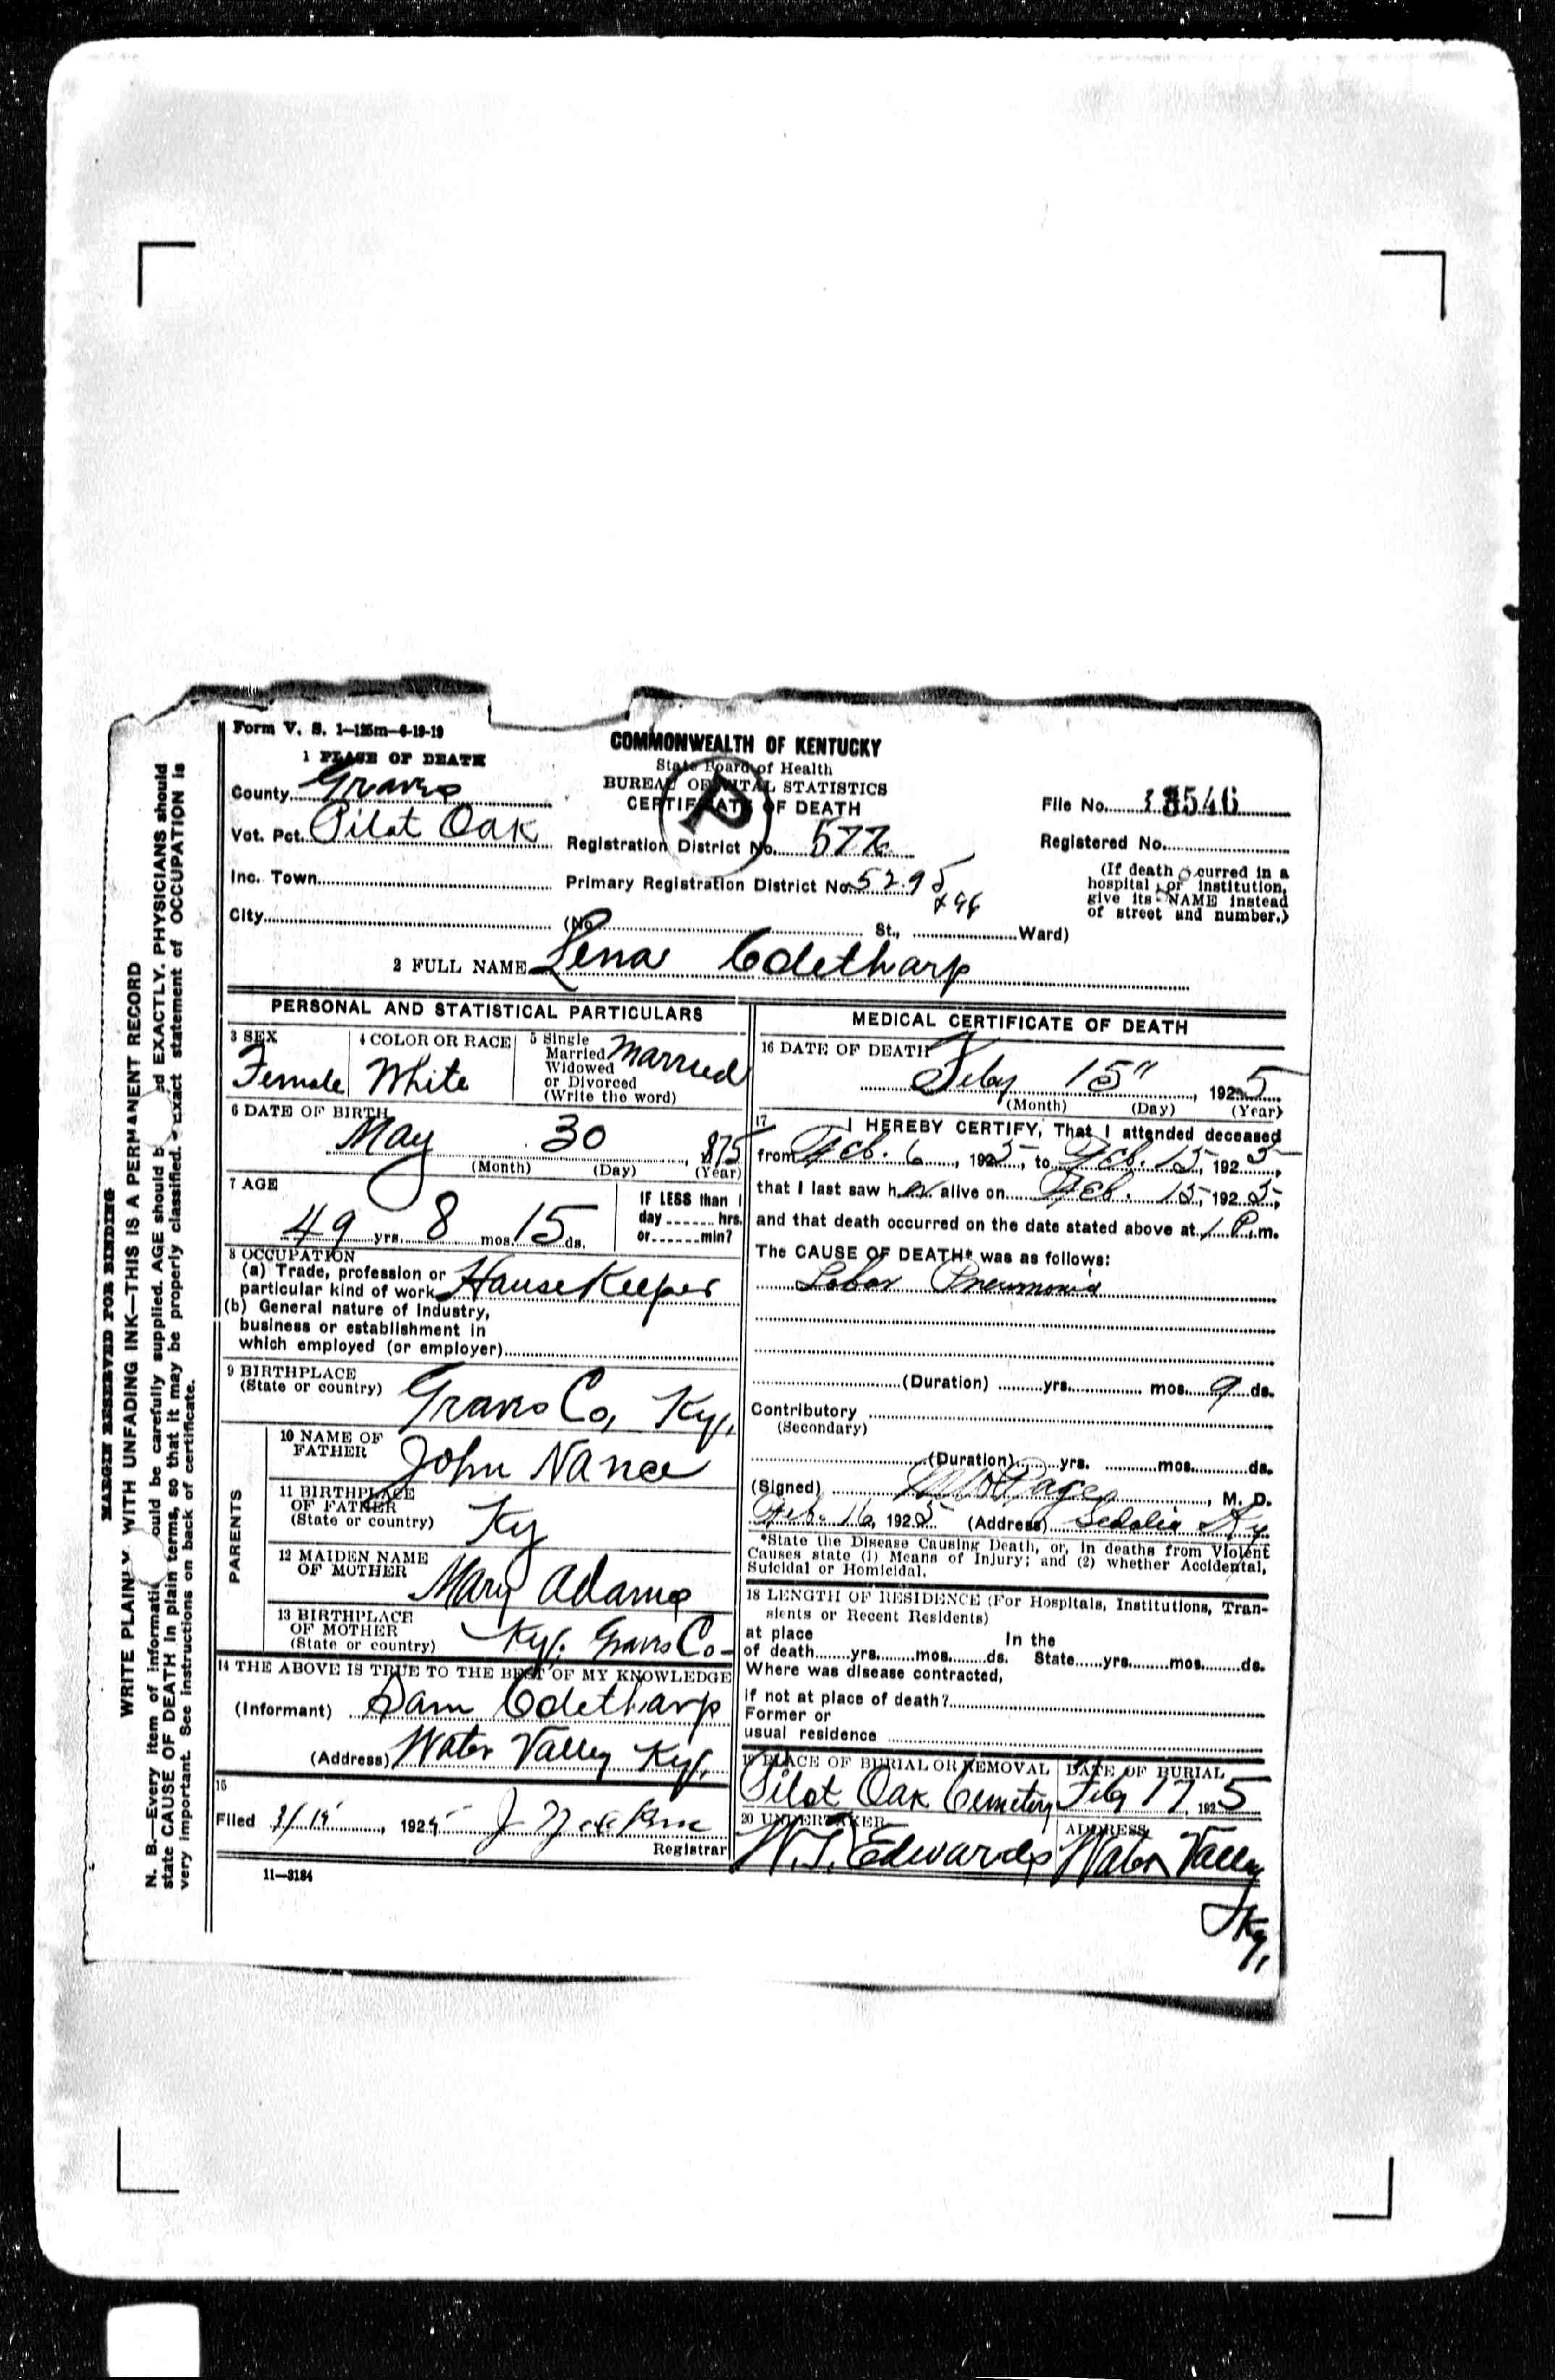 Form V. S. 1—125m—6-19-19
COMMONWEALTH OF KENTUCKY
State Board of Health
BUREAU OF VITAL STATISTICS
CERTIFICATE OF DEATH
1 PLACE OF DEATH
County Graves
Vot. Pct. Pilot Oak
Inc. Town
City
Registration District No. 577
Primary Registration District No. 5295
(No. St., Ward)
File No. 3546
Registered No.
(If death occurred in a
hospital or institution,
give its NAME instead
of street and number.)
2 FULL NAME Lena Edetharp
PERSONAL AND STATISTICAL PARTICULARS
3 SEX
Female
4 COLOR OR RACE
White
5 Single
Married
Widowed
or Divorced
(Write the word)
Married
6 DATE OF BIRTH
May 30, 1875
(Month) (Day) (Year)
7 AGE
49 yrs. 8 mos. 15 ds.
IF LESS than 1
day hrs.
or min?
8 OCCUPATION
(a) Trade, profession or
particular kind of work House Keeper
(b) General nature of Industry,
business or establishment in
which employed (or employer)
9 BIRTHPLACE
(State or country) Graves Co, Ky.
PARENTS
10 NAME OF
FATHER John Nance
11 BIRTHPLACE
OF FATHER
(State or country) Ky
12 MAIDEN NAME
OF MOTHER Mary Adams
13 BIRTHPLACE
OF MOTHER
(State or country) Ky. Graves Co
14 THE ABOVE IS TRUE TO THE BEST OF MY KNOWLEDGE
(Informant) Sam Edetharp
(Address) Water Valley Ky.
15
Filed 1925
Registrar
11—3184
MEDICAL CERTIFICATE OF DEATH
16 DATE OF DEATH
Feby 15", 1925
(Month) (Day) (Year)
17 I HEREBY CERTIFY, That I attended deceased
from Feb. 6, 1925, to Feb. 15, 1925,
that I last saw her alive on Feb. 15, 1925,
and that death occurred on the date stated above at 1 P.m.
The CAUSE OF DEATH* was as follows:
Lobar Pneumonia
(Duration) yrs. mos. 9 ds.
Contributory
(Secondary)
(Duration) yrs. mos. ds.
(Signed) Page, M. D.
Feb. 16, 1925 (Address) Sedalia Ky
*State the Disease Causing Death, or, in deaths from Violent
Causes state (1) Means of Injury; and (2) whether Accidental,
Suicidal or Homicidal.
18 LENGTH OF RESIDENCE (For Hospitals, Institutions, Tran-
sients or Recent Residents)
at place In the
of death yrs. mos. ds. State yrs. mos. ds.
Where was disease contracted,
if not at place of death?
Former or
usual residence
19 PLACE OF BURIAL OR REMOVAL
Pilot Oak Cemetery
DATE OF BURIAL
Feby 17, 1925
20 UNDERTAKER
W. T. Edwards
ADDRESS
Water Valley
Ky,
MARGIN RESERVED FOR BINDING
WRITE PLAINLY WITH UNFADING INK—THIS IS A PERMANENT RECORD
N. B.—Every item of information should be carefully supplied. AGE should be stated EXACTLY. PHYSICIANS should
state CAUSE OF DEATH in plain terms, so that it may be properly classified. Exact statement of OCCUPATION is
very important. See instructions on back of certificate.